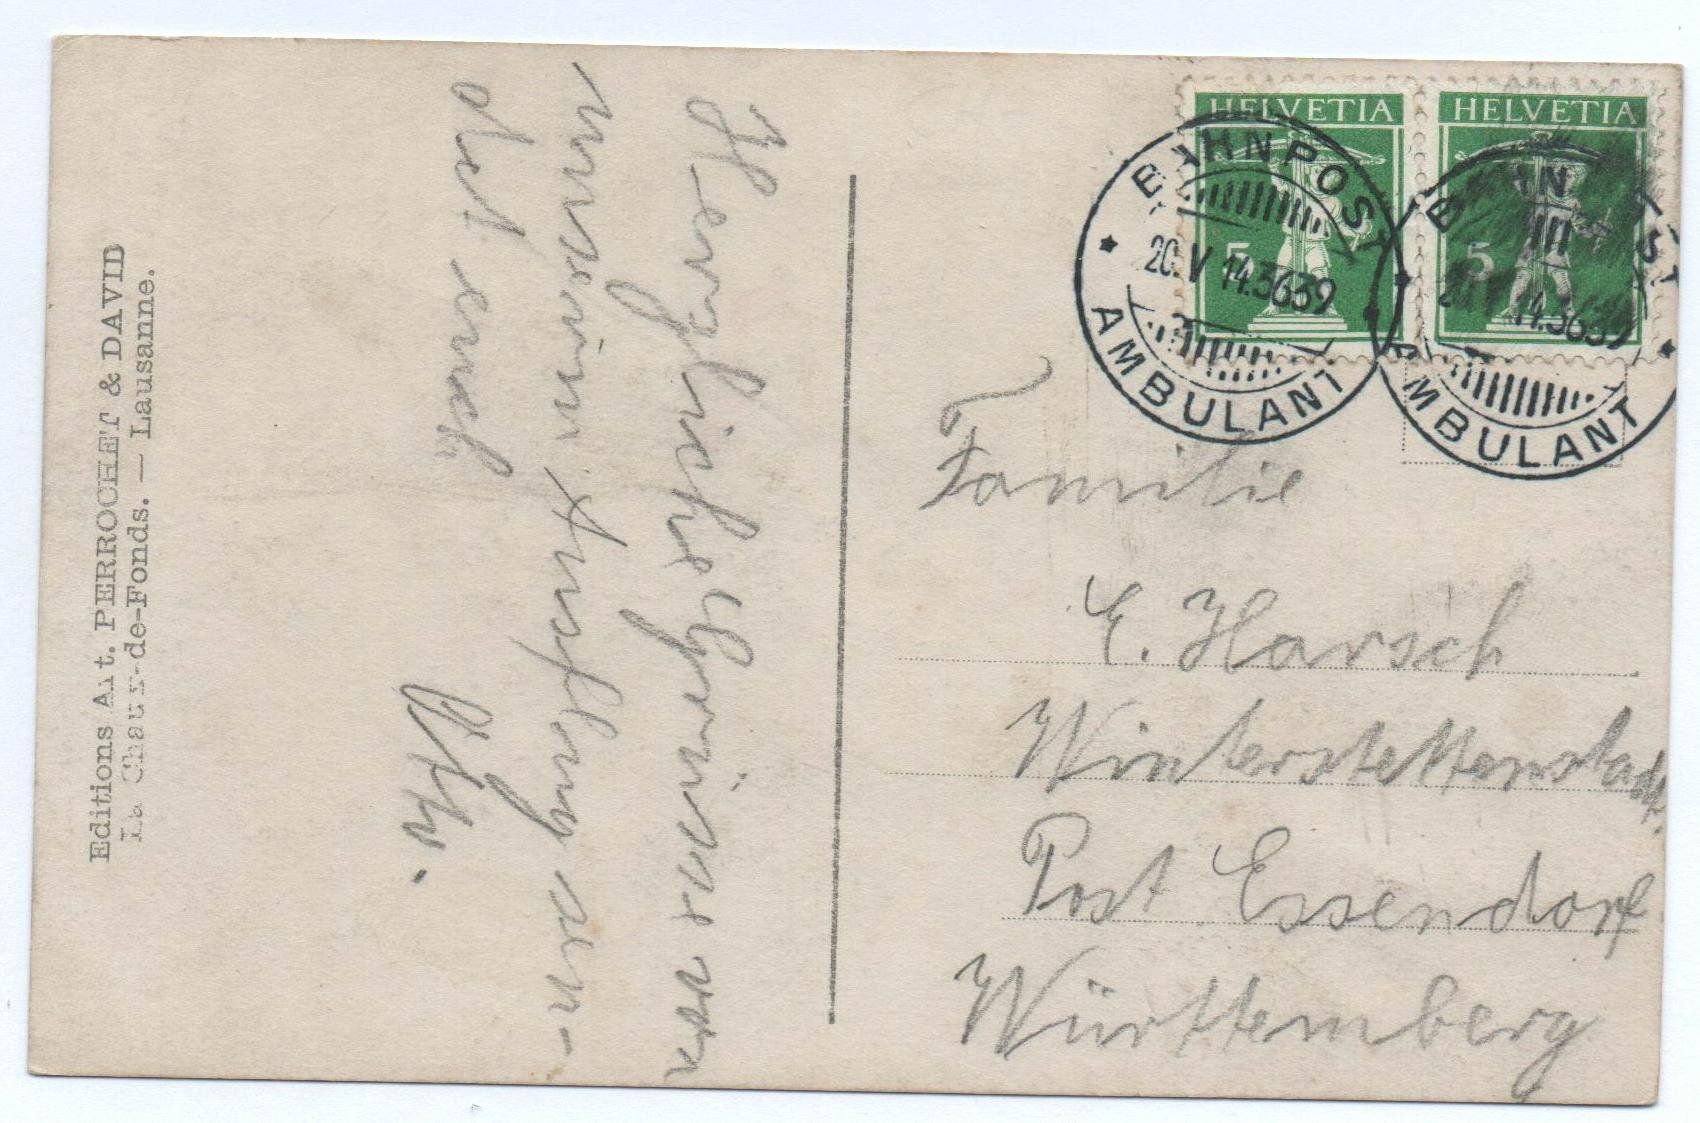 Editions Art. PERROCHET & DAVID
La Chaux-de-Fonds. — Lausanne.
Herzliche Grüsse von
unserem Ausflug sen-
det euch
HELVETIA
HELVETIA
5
5
BAHNPOST
20.V.14.3639
AMBULANT
BAHNPOST
20.V.14.3639
AMBULANT
Familie
E. Harsch
Winterstettenstadt
Post Essendorf
Württemberg